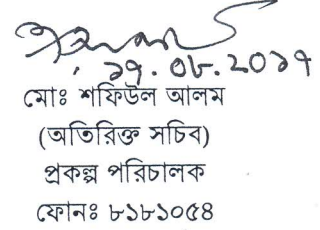 ১৭.০৮.২০১৭
মোঃ শফিউল আলম
(অতিরিক্ত সচিব)
প্রকল্প পরিচালক
ফোনঃ ৮১৮১০৫৪